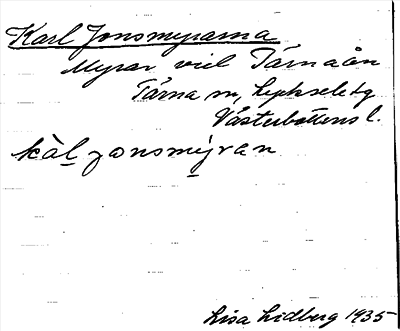 Karl Jonsmyrarna
Myrar vid Tärnaån
Tärna sn, Lycksele tg
Västerbottens l.
kàl jonsmyran
Lisa Lidberg 1935